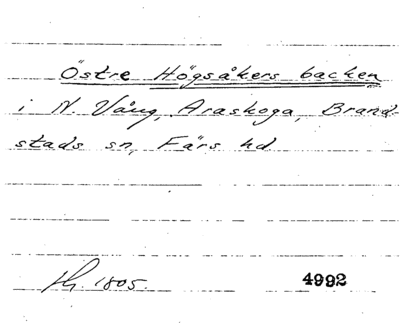 Östre Högsåkers backen
i N. Vång, Araskoga, Brand-
stads sn, Färs hd
1805. 4992